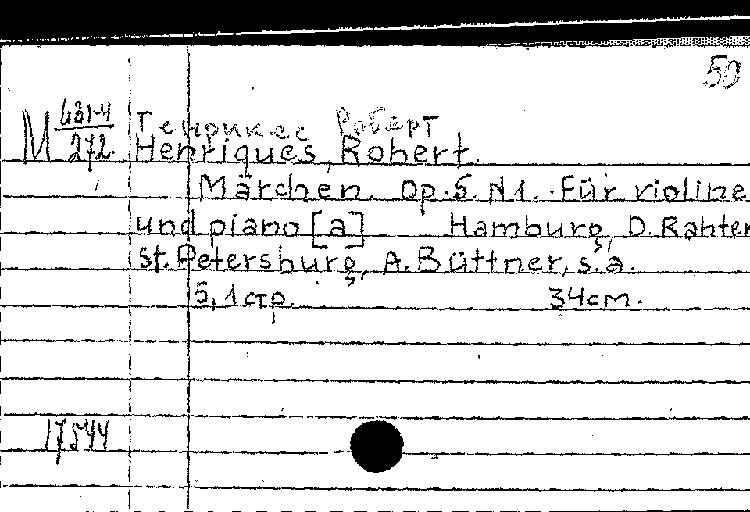 50
М 631-4
272
Генрикес Роберт
Henriques, Robert.
Märchen. Op. 5. N1. Für violine
und piano [a] Hamburg, D. Rahter
St. Petersburg, A. Büttner, s.a.
5, 1 стр. 34cm.
17544